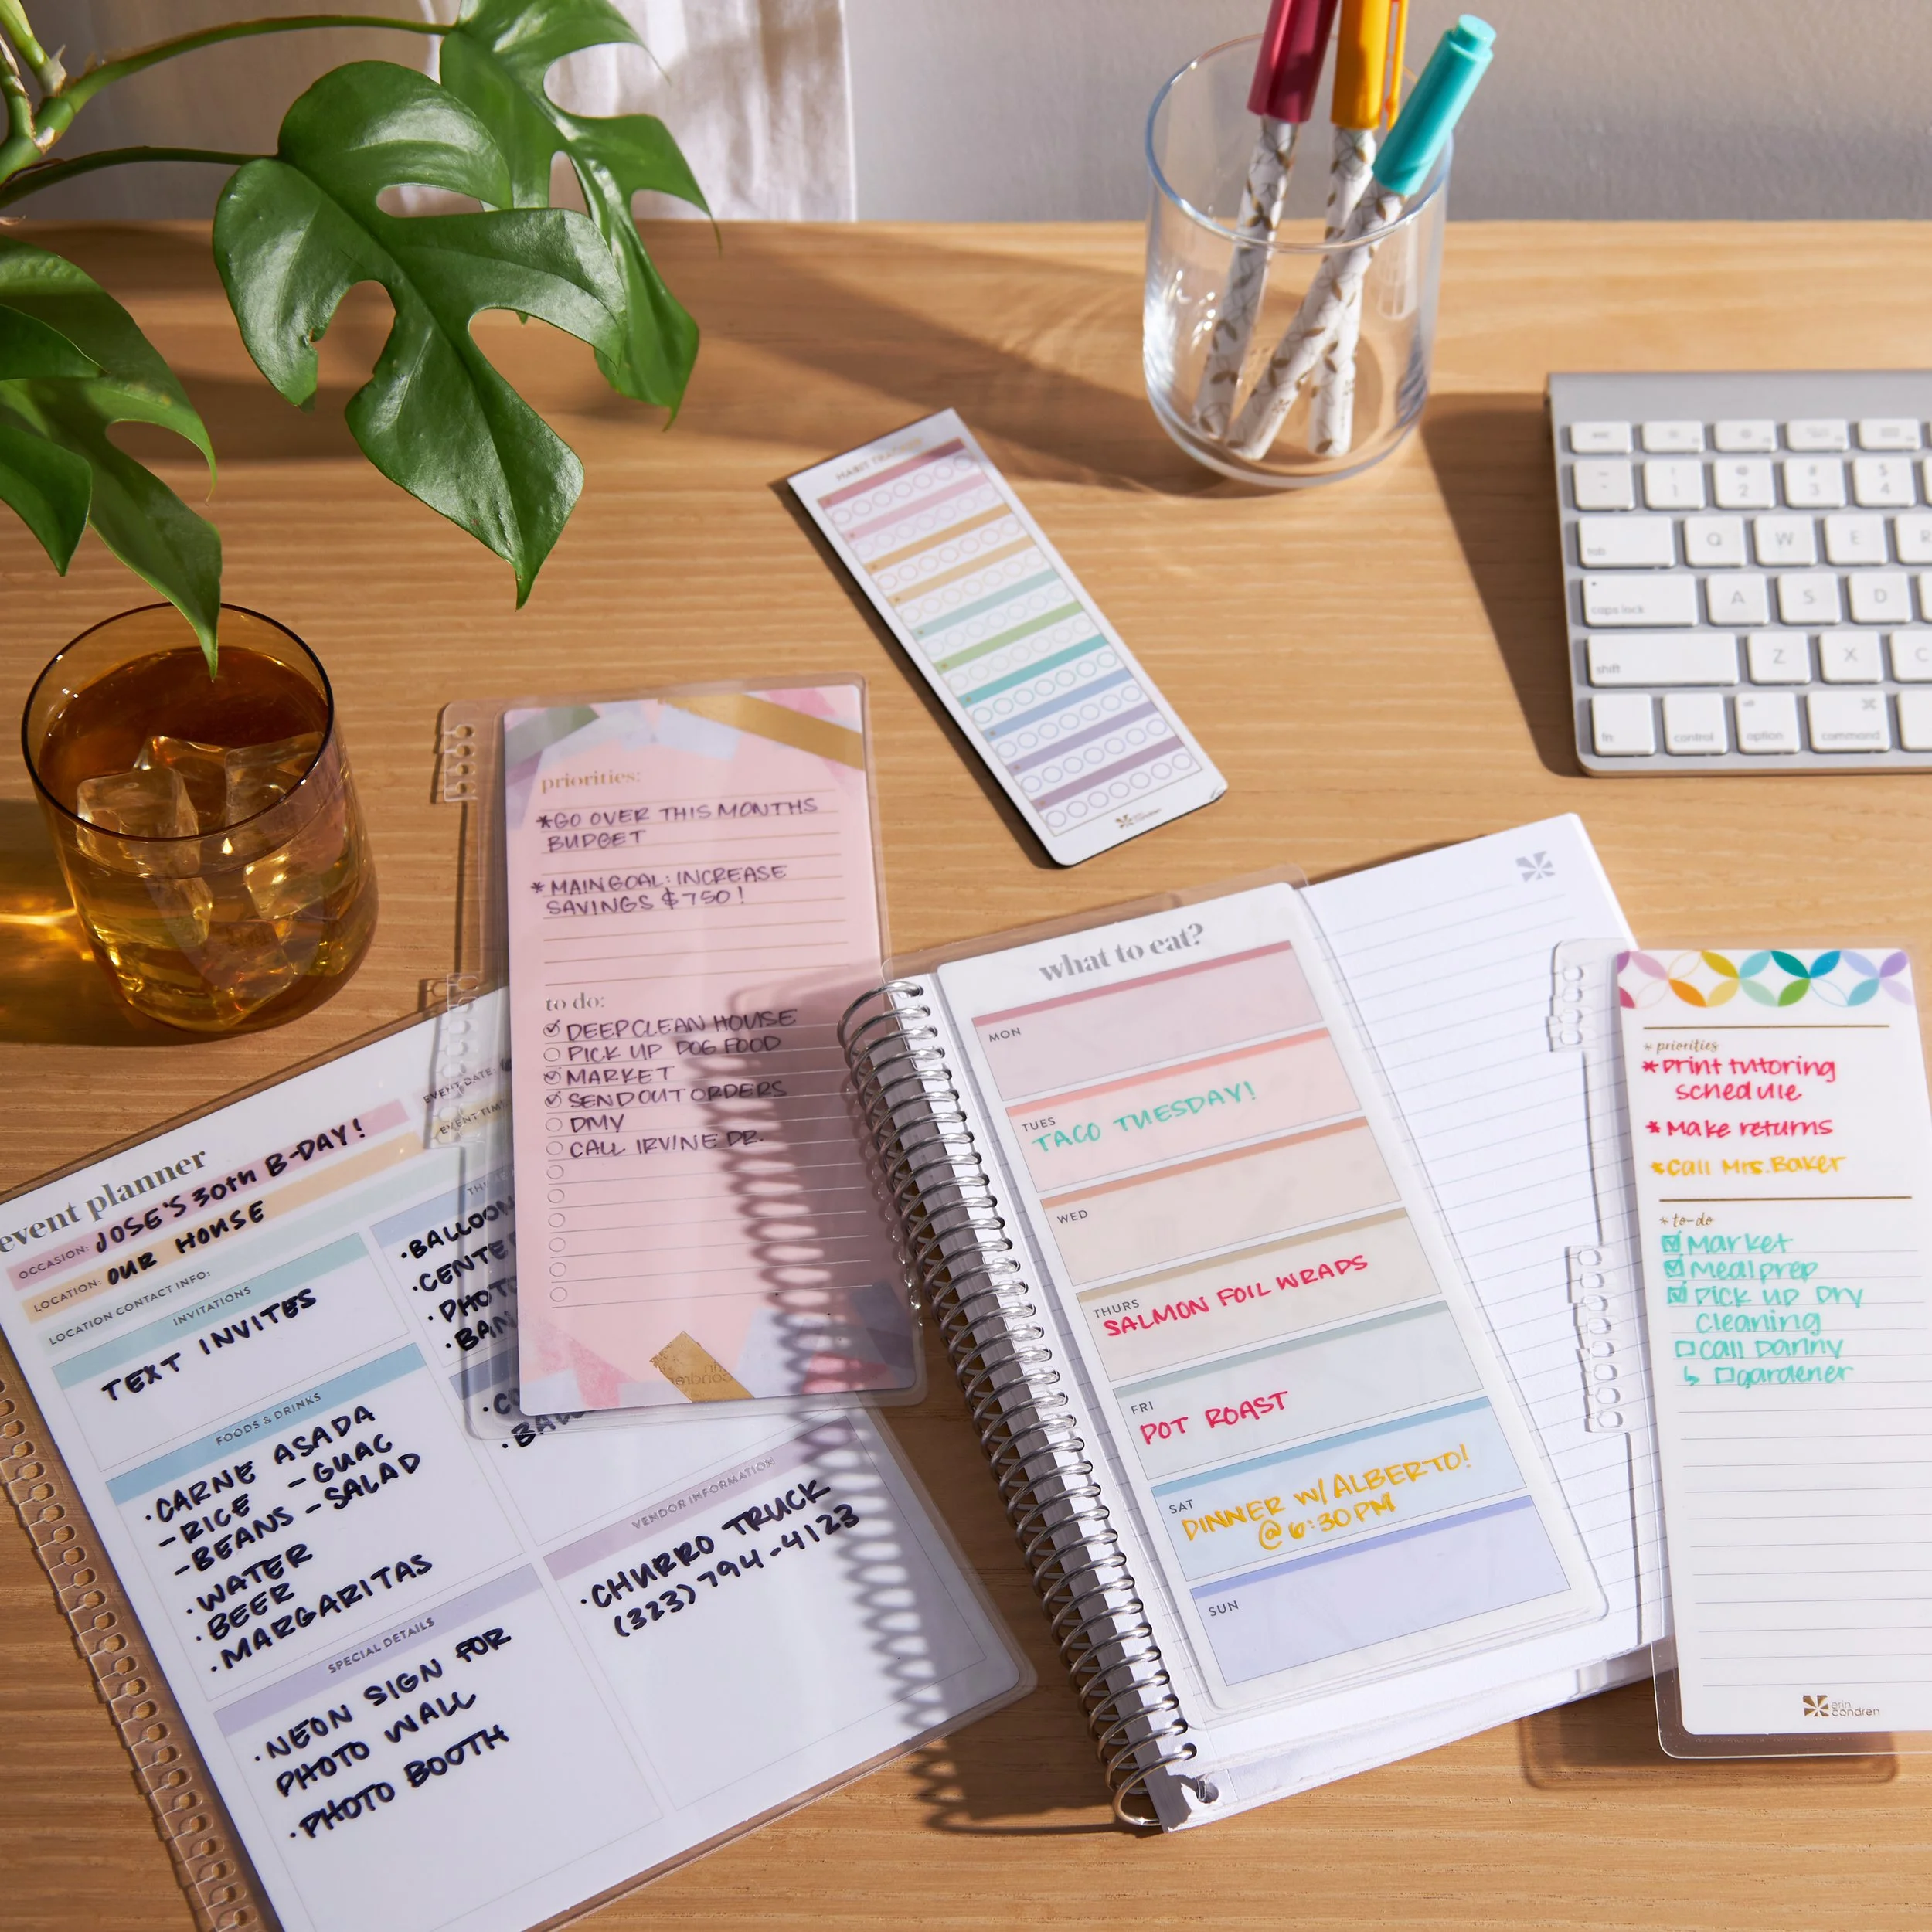 HABIT TRACKER
erin
condren
tab
caps lock
shift
fn
control
option
command
1
2
3
4
Q
W
E
R
A
S
D
Z
X
C
priorities:
*GO OVER THIS MONTHS
BUDGET
*MAIN GOAL: INCREASE
SAVINGS $750!
to do:
DEEP CLEAN HOUSE
PICK UP DOG FOOD
MARKET
SEND OUT ORDERS
DMV
CALL IRVINE DR.
erin
condren
event planner
OCCASION: JOSE'S 30th B-DAY!
LOCATION: OUR HOUSE
LOCATION CONTACT INFO:
EVENT DATE:
EVENT TIME
INVITATIONS
TEXT INVITES
FOODS & DRINKS
•CARNE ASADA
-RICE -GUAC
-BEANS -SALAD
•WATER
•BEER
•MARGARITAS
SPECIAL DETAILS
•NEON SIGN FOR
PHOTO WALL
•PHOTO BOOTH
VENDOR INFORMATION
•CHURRO TRUCK
(323) 794-4123
what to eat?
MON
TUES
TACO TUESDAY!
WED
THURS
SALMON FOIL WRAPS
FRI
POT ROAST
SAT
DINNER W/ ALBERTO!
@ 6:30PM
SUN
* priorities
*Print tutoring
schedule
*Make returns
*Call Mrs. Baker
* to-do
Market
Meal prep
Pick up Dry
Cleaning
Call Danny
gardener
erin
condren